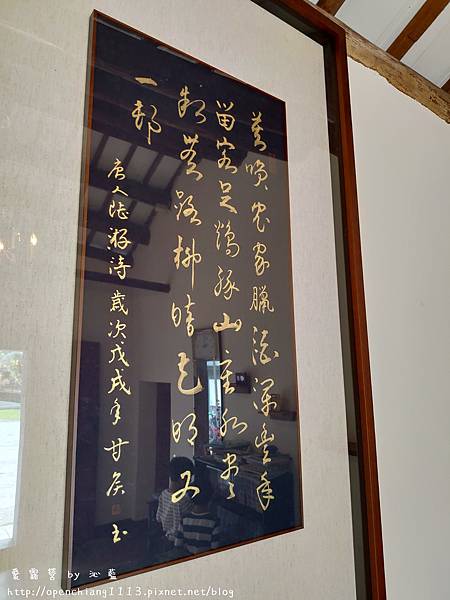 莫咲農家臘酒渾豐年
留客足鷄豚山重水復
疑無路柳暗花明又
一邨
唐人陸游詩 歲次戊戌年 甘 書
愛露營 by 沁藍
http://openchiang1113.pixnet.net/blog